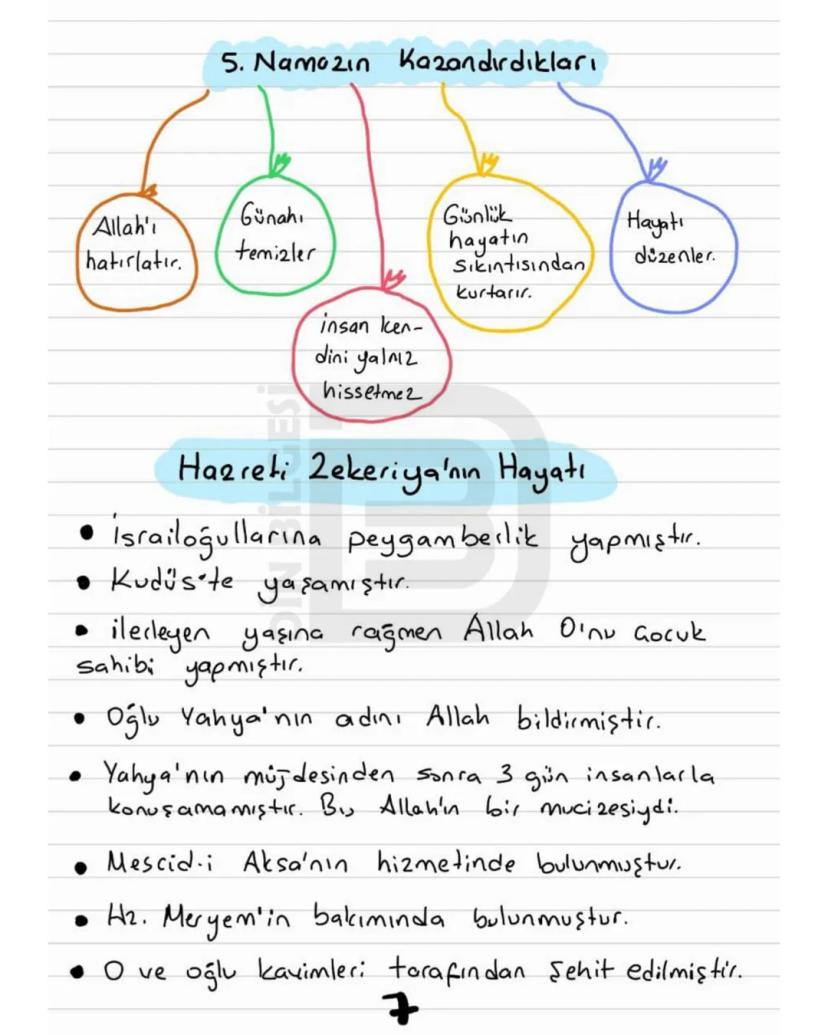 5. Namazın Kazandırdıkları
Allah'ı
hatırlatır.
Günahı
temizler
insan ken-
dini yalnız
hissetmez
Günlük
hayatın
sıkıntısından
kurtarır.
Hayatı
düzenler.
Hazreti Zekeriya'nın Hayatı
• İsrailoğullarına peygamberlik yapmıştır.
• Kudüs'te yaşamıştır.
• ilerleyen yaşına rağmen Allah O'nu çocuk
sahibi yapmıştır.
• Oğlu Yahya'nın adını Allah bildirmiştir.
• Yahya'nın müjdesinden sonra 3 gün insanlarla
konuşamamıştır. Bu Allah'ın bir mucizesiydi.
• Mescid-i Aksa'nın hizmetinde bulunmuştur.
• Hz. Meryem'in bakımında bulunmuştur.
• O ve oğlu kavimleri tarafından şehit edilmiştir.
7
ÖN BİLGESİ